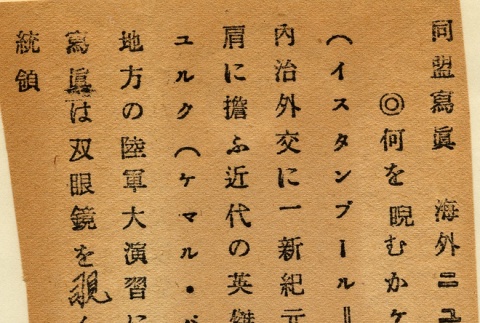 同盟寫眞 海外ニュ
◎何を睨むかケ
(イスタンブール=
內治外交に一新紀元
肩に擔ふ近代の英傑
ユルク(ケマル・パ
地方の陸軍大演習に
寫眞は双眼鏡を覗く
統領